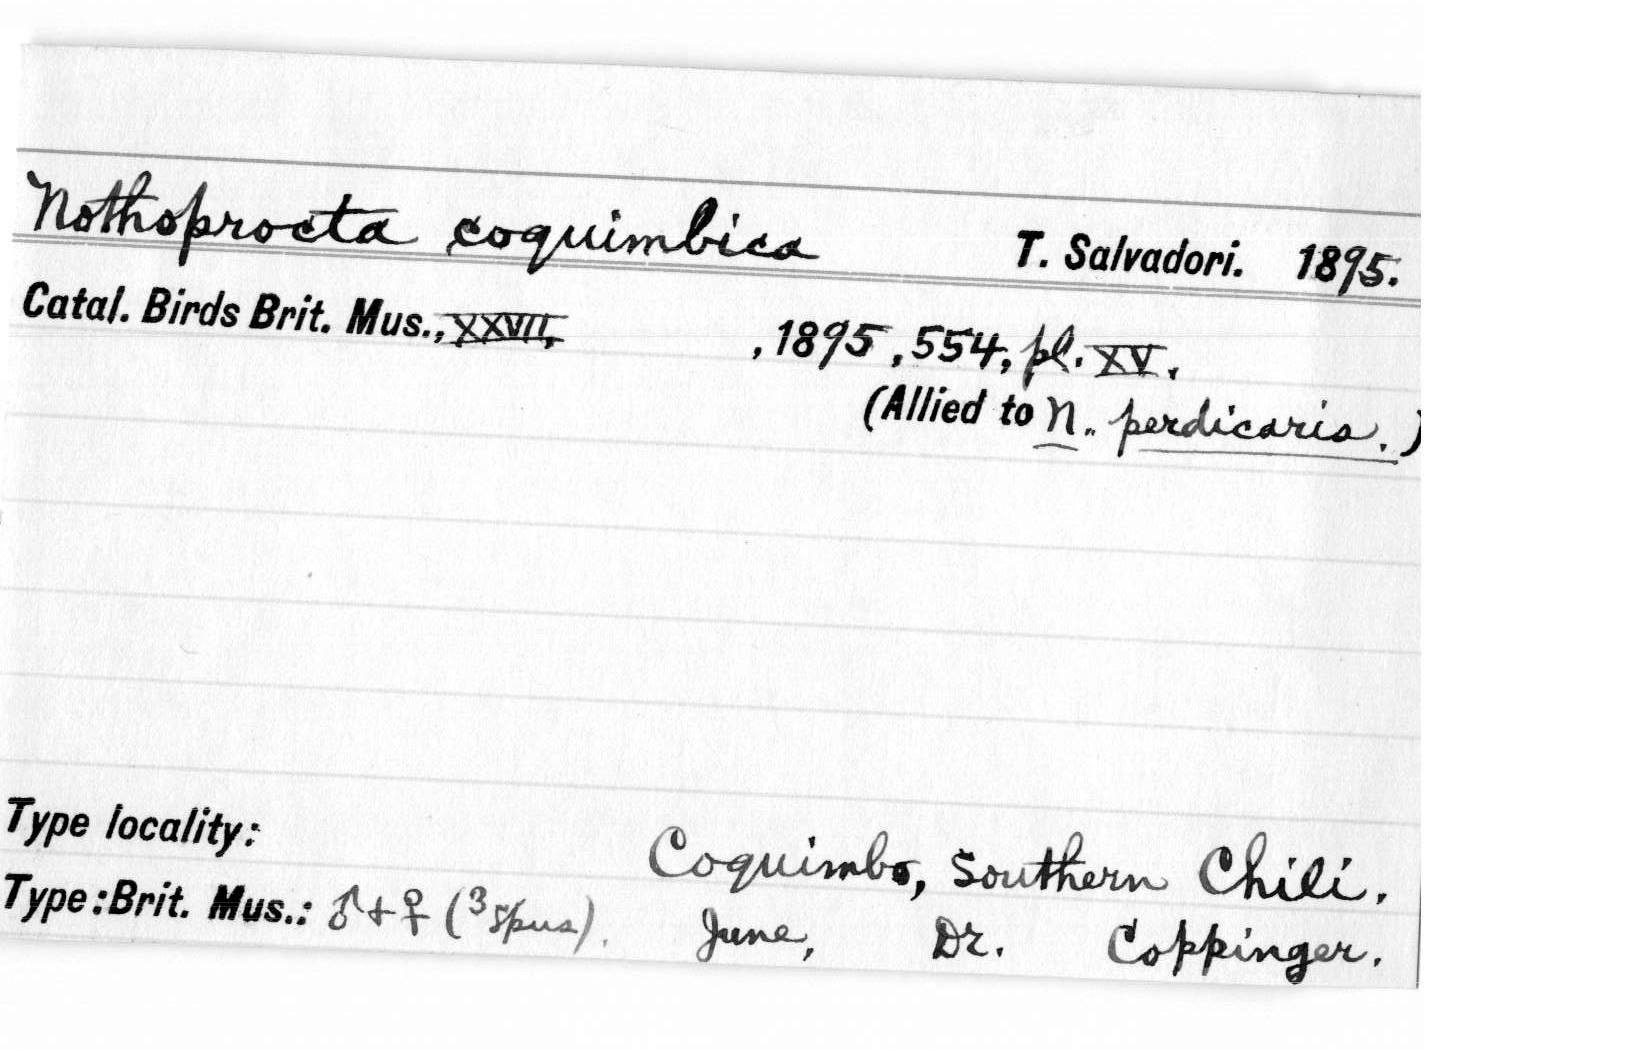 Nothoprocta coquimbica T. Salvadori. 1895.
Catal. Birds Brit. Mus., XXVII, , 1895, 554, pl. XV.
(Allied to N. perdicaria.)
Type locality: Coquimbo, Southern Chili.
Type: Brit. Mus.: ♂ + ♀ (3 spus). June, Dr. Coppinger.